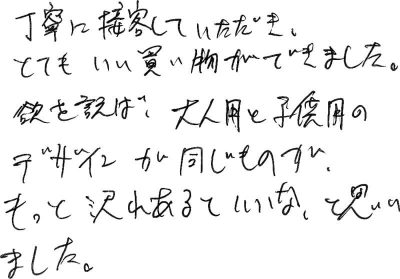 丁寧に接客していただき、
とてもいい買い物ができました。
欲を説ば、大人用と子供用の
デザインが同じものが、
もっと沢れあるといいな、と思い
ました。